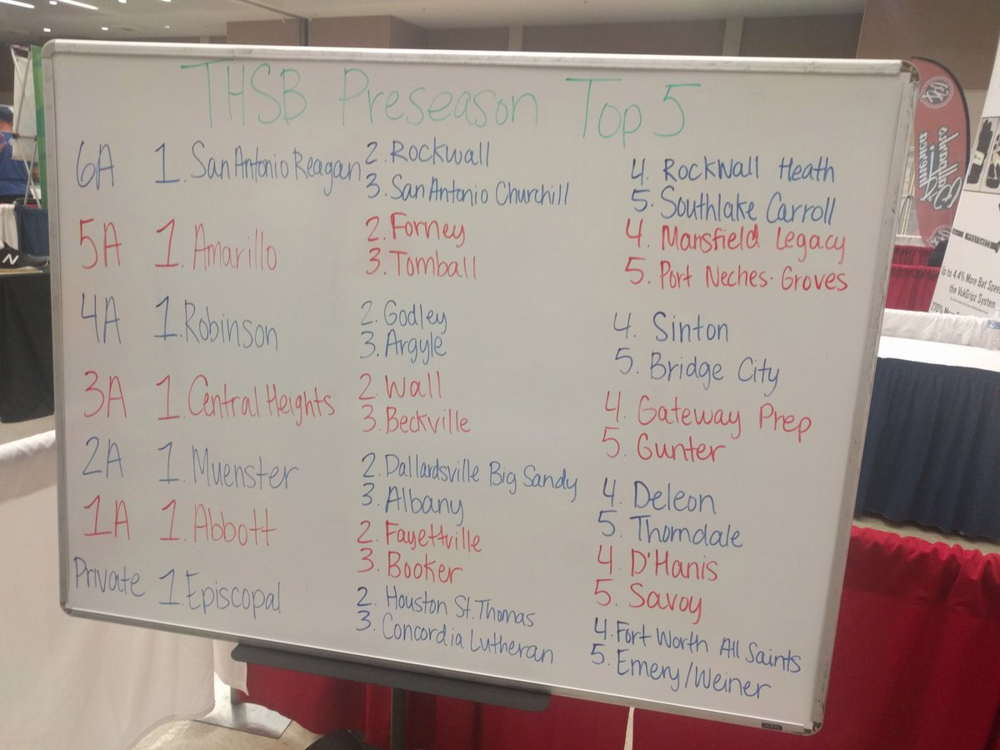 THSB Preseason Top 5
6A 1. San Antonio Reagan
2. Rockwall
3. San Antonio Churchill
4. Rockwall Heath
5. Southlake Carroll
5A 1. Amarillo
2. Forney
3. Tomball
4. Mansfield Legacy
5. Port Neches-Groves
4A 1. Robinson
2. Godley
3. Argyle
4. Sinton
5. Bridge City
3A 1. Central Heights
2. Wall
3. Beckville
4. Gateway Prep
5. Gunter
2A 1. Muenster
2. Dallardsville Big Sandy
3. Albany
4. Deleon
5. Thorndale
1A 1. Abbott
2. Fayettville
3. Booker
4. D'Hanis
5. Savoy
Private 1 Episcopal
2. Houston St. Thomas
3. Concordia Lutheran
4. Fort Worth All Saints
5. Emery/Weiner
to 4.4% More Bat Spee
the VukGripz System